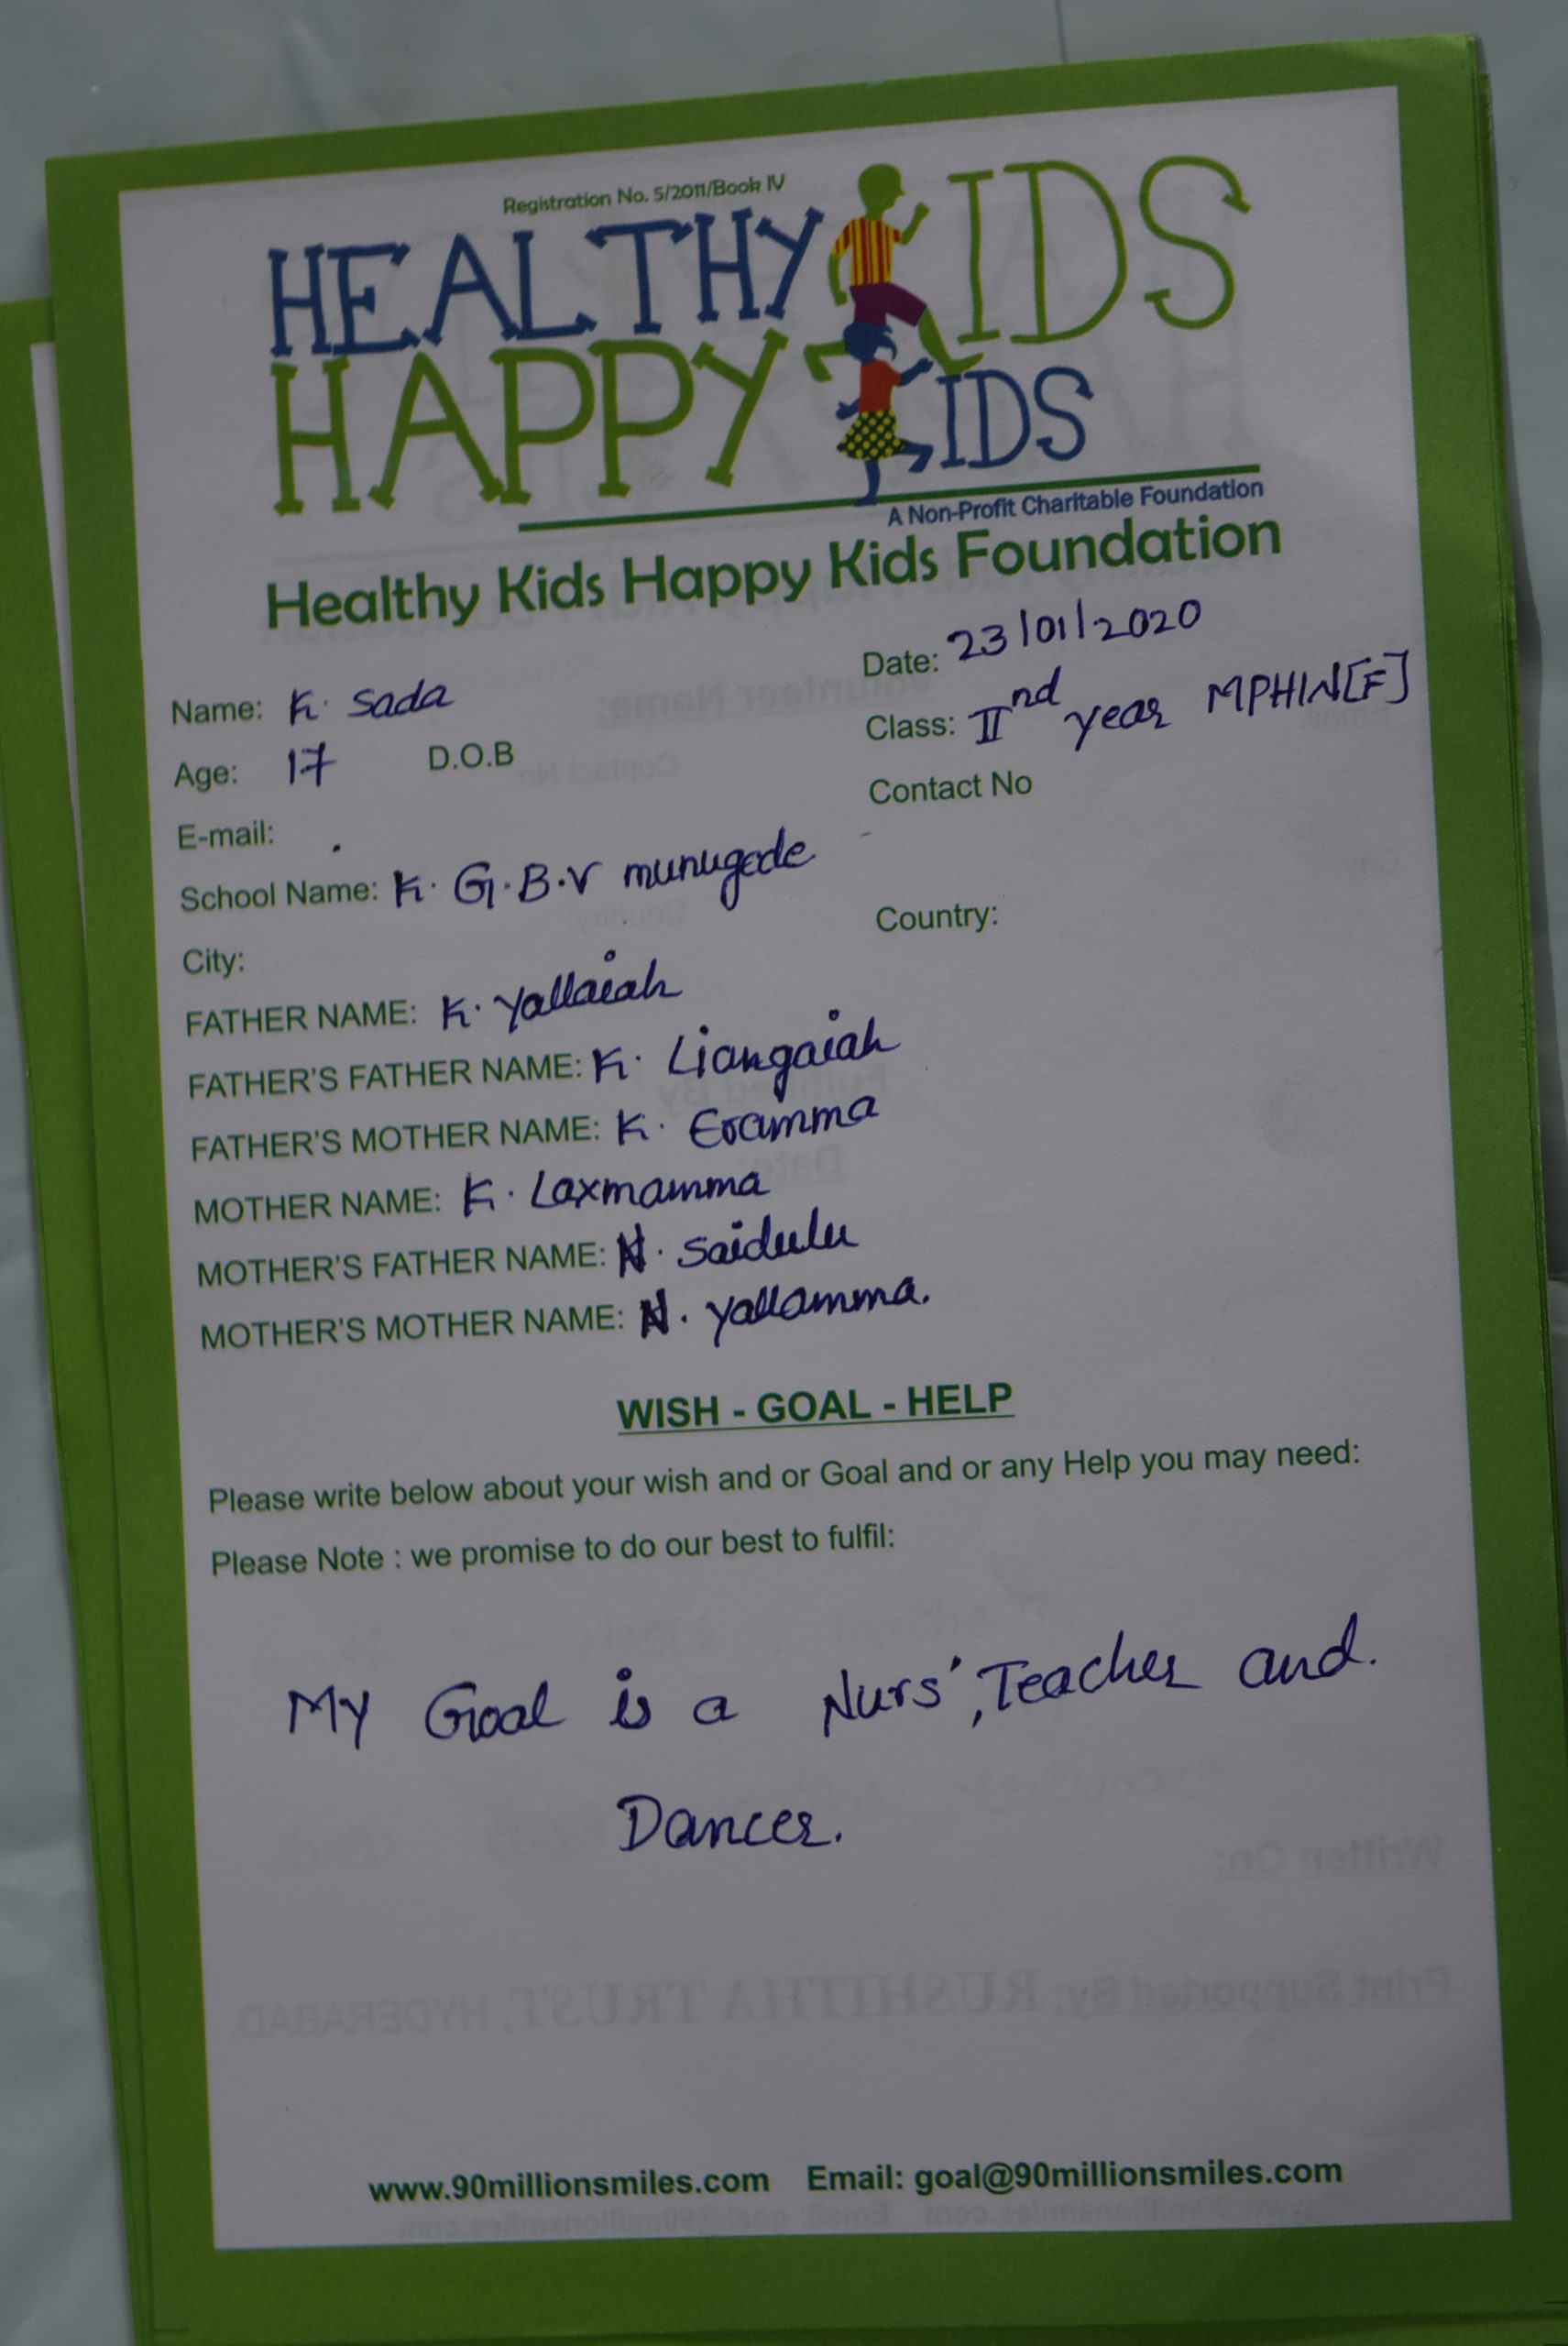 Registration No. 5/2011/Book IV
HEALTHY KIDS
HAPPY KIDS
A Non-Profit Charitable Foundation
Healthy Kids Happy Kids Foundation
Date: 23/01/2020
Name: K. Sada
Class: IInd year MPHIN[F]
Age: 17 D.O.B
Contact No
E-mail:
School Name: K. G.B.V munugode
City: Country:
FATHER NAME: K. Yallaiah
FATHER'S FATHER NAME: K. Liangaiah
FATHER'S MOTHER NAME: K. Eramma
MOTHER NAME: K. Laxmamma
MOTHER'S FATHER NAME: N. Saidulu
MOTHER'S MOTHER NAME: N. yallamma.
WISH - GOAL - HELP
Please write below about your wish and or Goal and or any Help you may need:
Please Note : we promise to do our best to fulfil:
My Goal is a Nurs', Teacher and.
Dancer.
www.90millionsmiles.com Email: goal@90millionsmiles.com